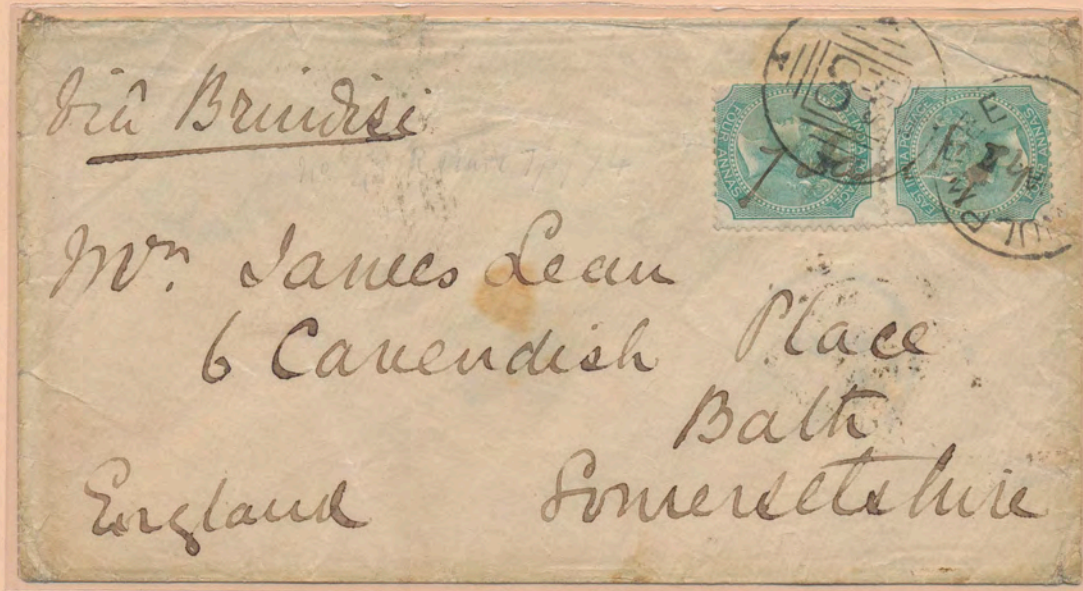 Viâ Brindisi
EAST INDIA POSTAGE
FOUR ANNAS
EAST INDIA POSTAGE
FOUR ANNAS
Mrs. James Lean
6 Cavendish Place
Bath
England Somersetshire